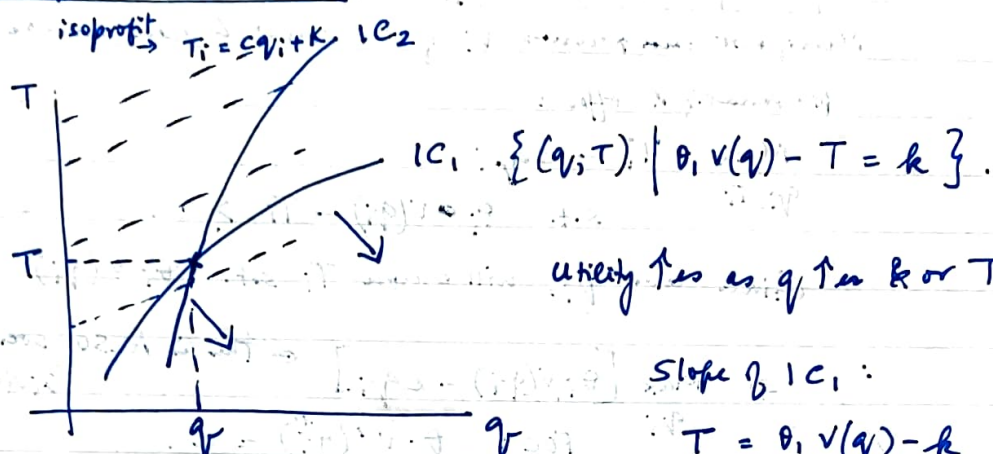 isoprofit → Tᵢ = cqᵢ + K IC₂
T
IC₁ : {(q, T) | θ₁ v(q) - T = k}.
T
utility ↑es as q ↑es & or T
Slope of IC₁ :
q q T = θ₁ v(q) - k